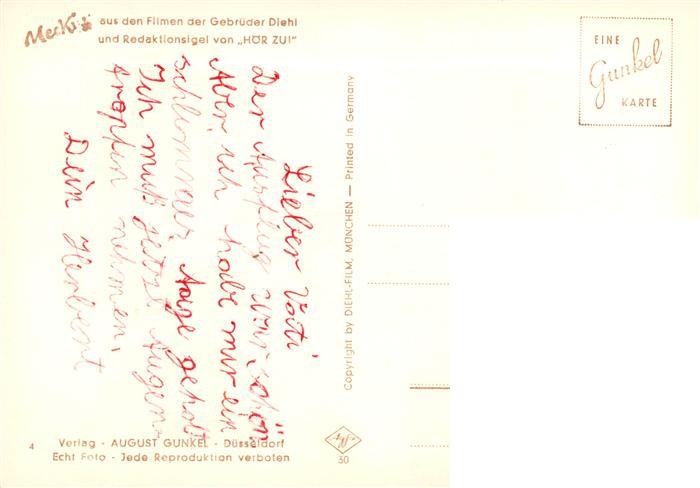 Mecki aus den Filmen der Gebrüder Diehl
und Redaktionsigel von „HÖR ZU!"
EINE
Gunkel
KARTE
Lieber Vati
Der Ausflug war schön
Aber ich habe mir ein
schlimmes Auge geholt
Ich muß jetzt Augen-
tropfen nehmen,
Dein Herbert
Copyright by DIEHL-FILM, MÜNCHEN — Printed in Germany
4
Verlag - AUGUST GUNKEL - Düsseldorf
Echt Foto - Jede Reproduktion verboten
30